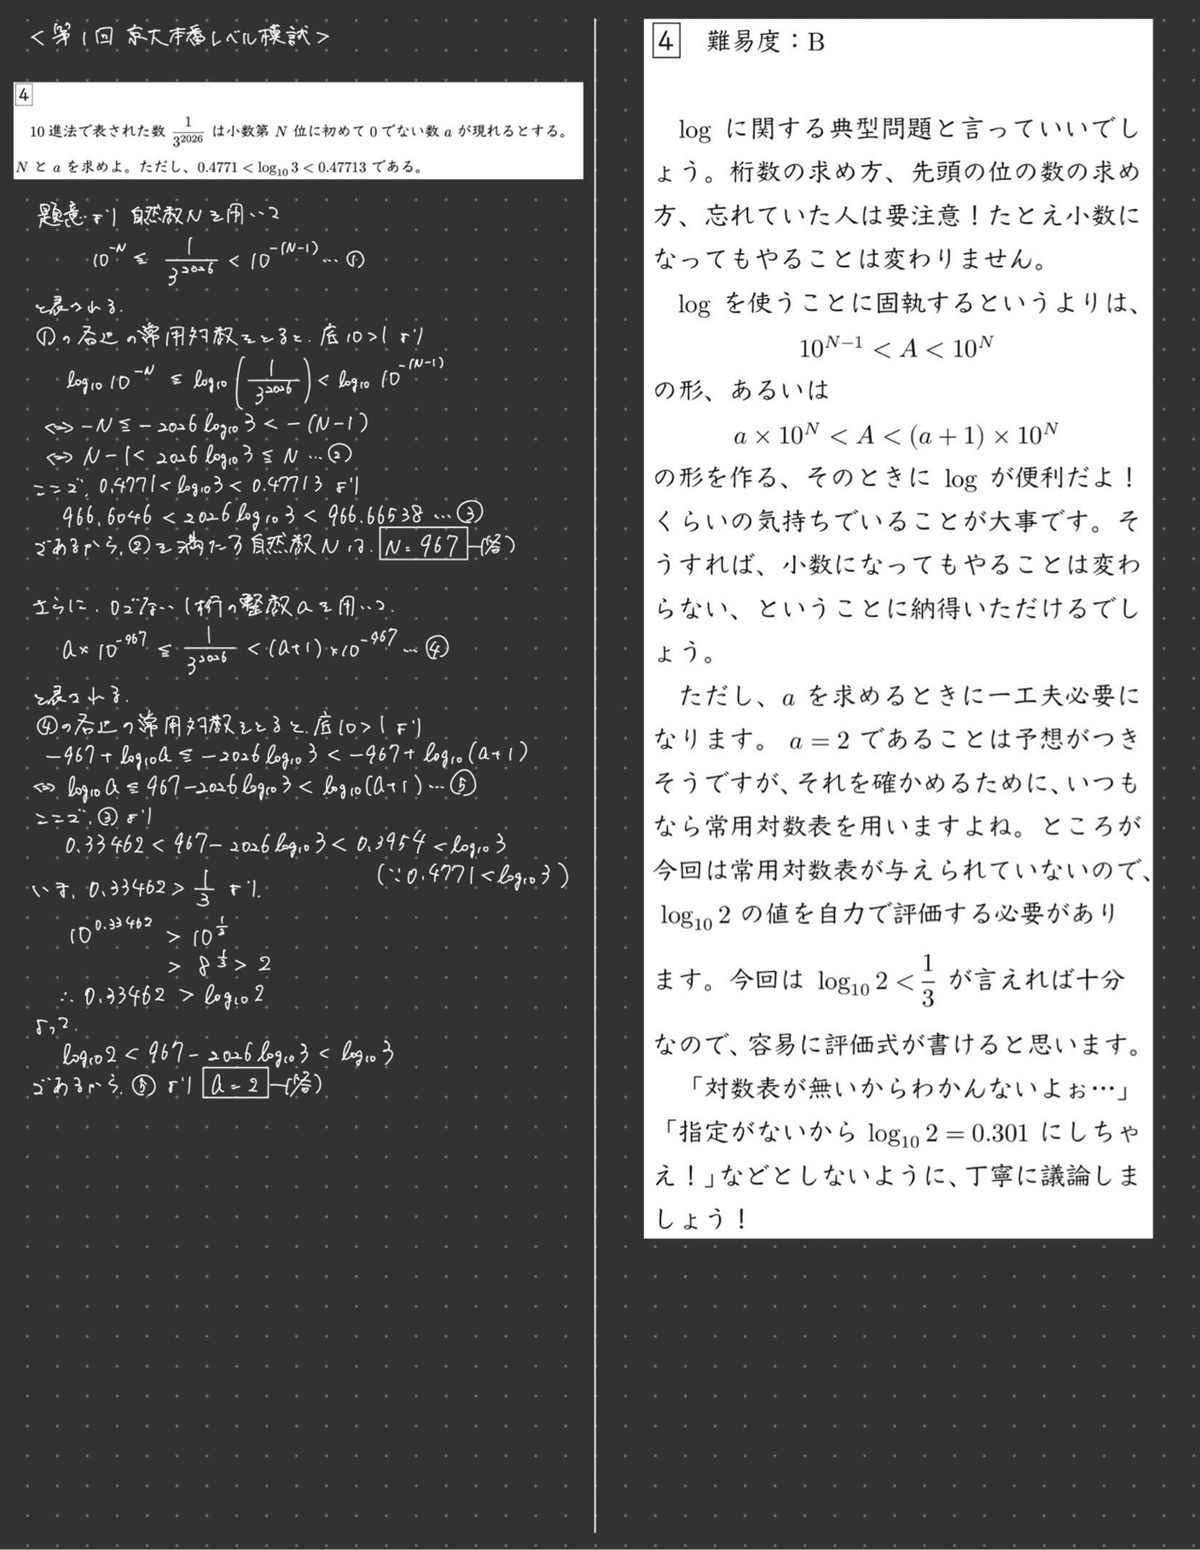 <第1回 京大本番レベル模試>
4
10進法で表された数 1/3^2026 は小数第 N 位に初めて 0 でない数 a が現れるとする。
N と a を求めよ。ただし、0.4771 < log₁₀ 3 < 0.47713 である。
題意より 自然数Nを用いて
10^-N ≦ 1/3^2026 < 10^-(N-1) … ①
と表される.
①の各辺の常用対数をとると、底10>1 より
log₁₀ 10^-N ≦ log₁₀ (1/3^2026) < log₁₀ 10^-(N-1)
⇔ -N ≦ -2026 log₁₀ 3 < -(N-1)
⇔ N-1 < 2026 log₁₀ 3 ≦ N … ②
ここで, 0.4771 < log₁₀ 3 < 0.47713 より
966.6046 < 2026 log₁₀ 3 < 966.66538 … ③
であるから, ②を満たす自然数Nは, N = 967 —(答)
さらに, 0でない1桁の整数aを用いて,
a×10^-967 ≦ 1/3^2026 < (a+1)×10^-967 … ④
と表される.
④の各辺の常用対数をとると、底10>1 より
-967 + log₁₀ a ≦ -2026 log₁₀ 3 < -967 + log₁₀ (a+1)
⇔ log₁₀ a ≦ 967 - 2026 log₁₀ 3 < log₁₀ (a+1) … ⑤
ここで, ③より
0.33462 < 967 - 2026 log₁₀ 3 < 0.3954 < log₁₀ 3
(∵ 0.4771 < log₁₀ 3)
いま, 0.33462 > 1/3 より.
10^0.33462 > 10^1/3
> 8^1/3 > 2
∴ 0.33462 > log₁₀ 2
よって.
log₁₀ 2 < 967 - 2026 log₁₀ 3 < log₁₀ 3
であるから, ⑤より a = 2 —(答)
4 難易度：B
log に関する典型問題と言っていいでし
ょう。桁数の求め方、先頭の位の数の求め
方、忘れていた人は要注意！たとえ小数に
なってもやることは変わりません。
log を使うことに固執するというよりは、
10^N−1 < A < 10^N
の形、あるいは
a × 10^N < A < (a + 1) × 10^N
の形を作る、そのときに log が便利だよ！
くらいの気持ちでいることが大事です。そ
うすれば、小数になってもやることは変わ
らない、ということに納得いただけるでし
ょう。
ただし、a を求めるときに一工夫必要に
なります。a = 2 であることは予想がつき
そうですが、それを確かめるために、いつも
なら常用対数表を用いますよね。ところが
今回は常用対数表が与えられていないので、
log₁₀ 2 の値を自力で評価する必要があり
ます。今回は log₁₀ 2 < 1/3 が言えれば十分
なので、容易に評価式が書けると思います。
「対数表が無いからわかんないよぉ…」
「指定がないから log₁₀ 2 = 0.301 にしちゃ
え！」などとしないように、丁寧に議論しま
しょう！